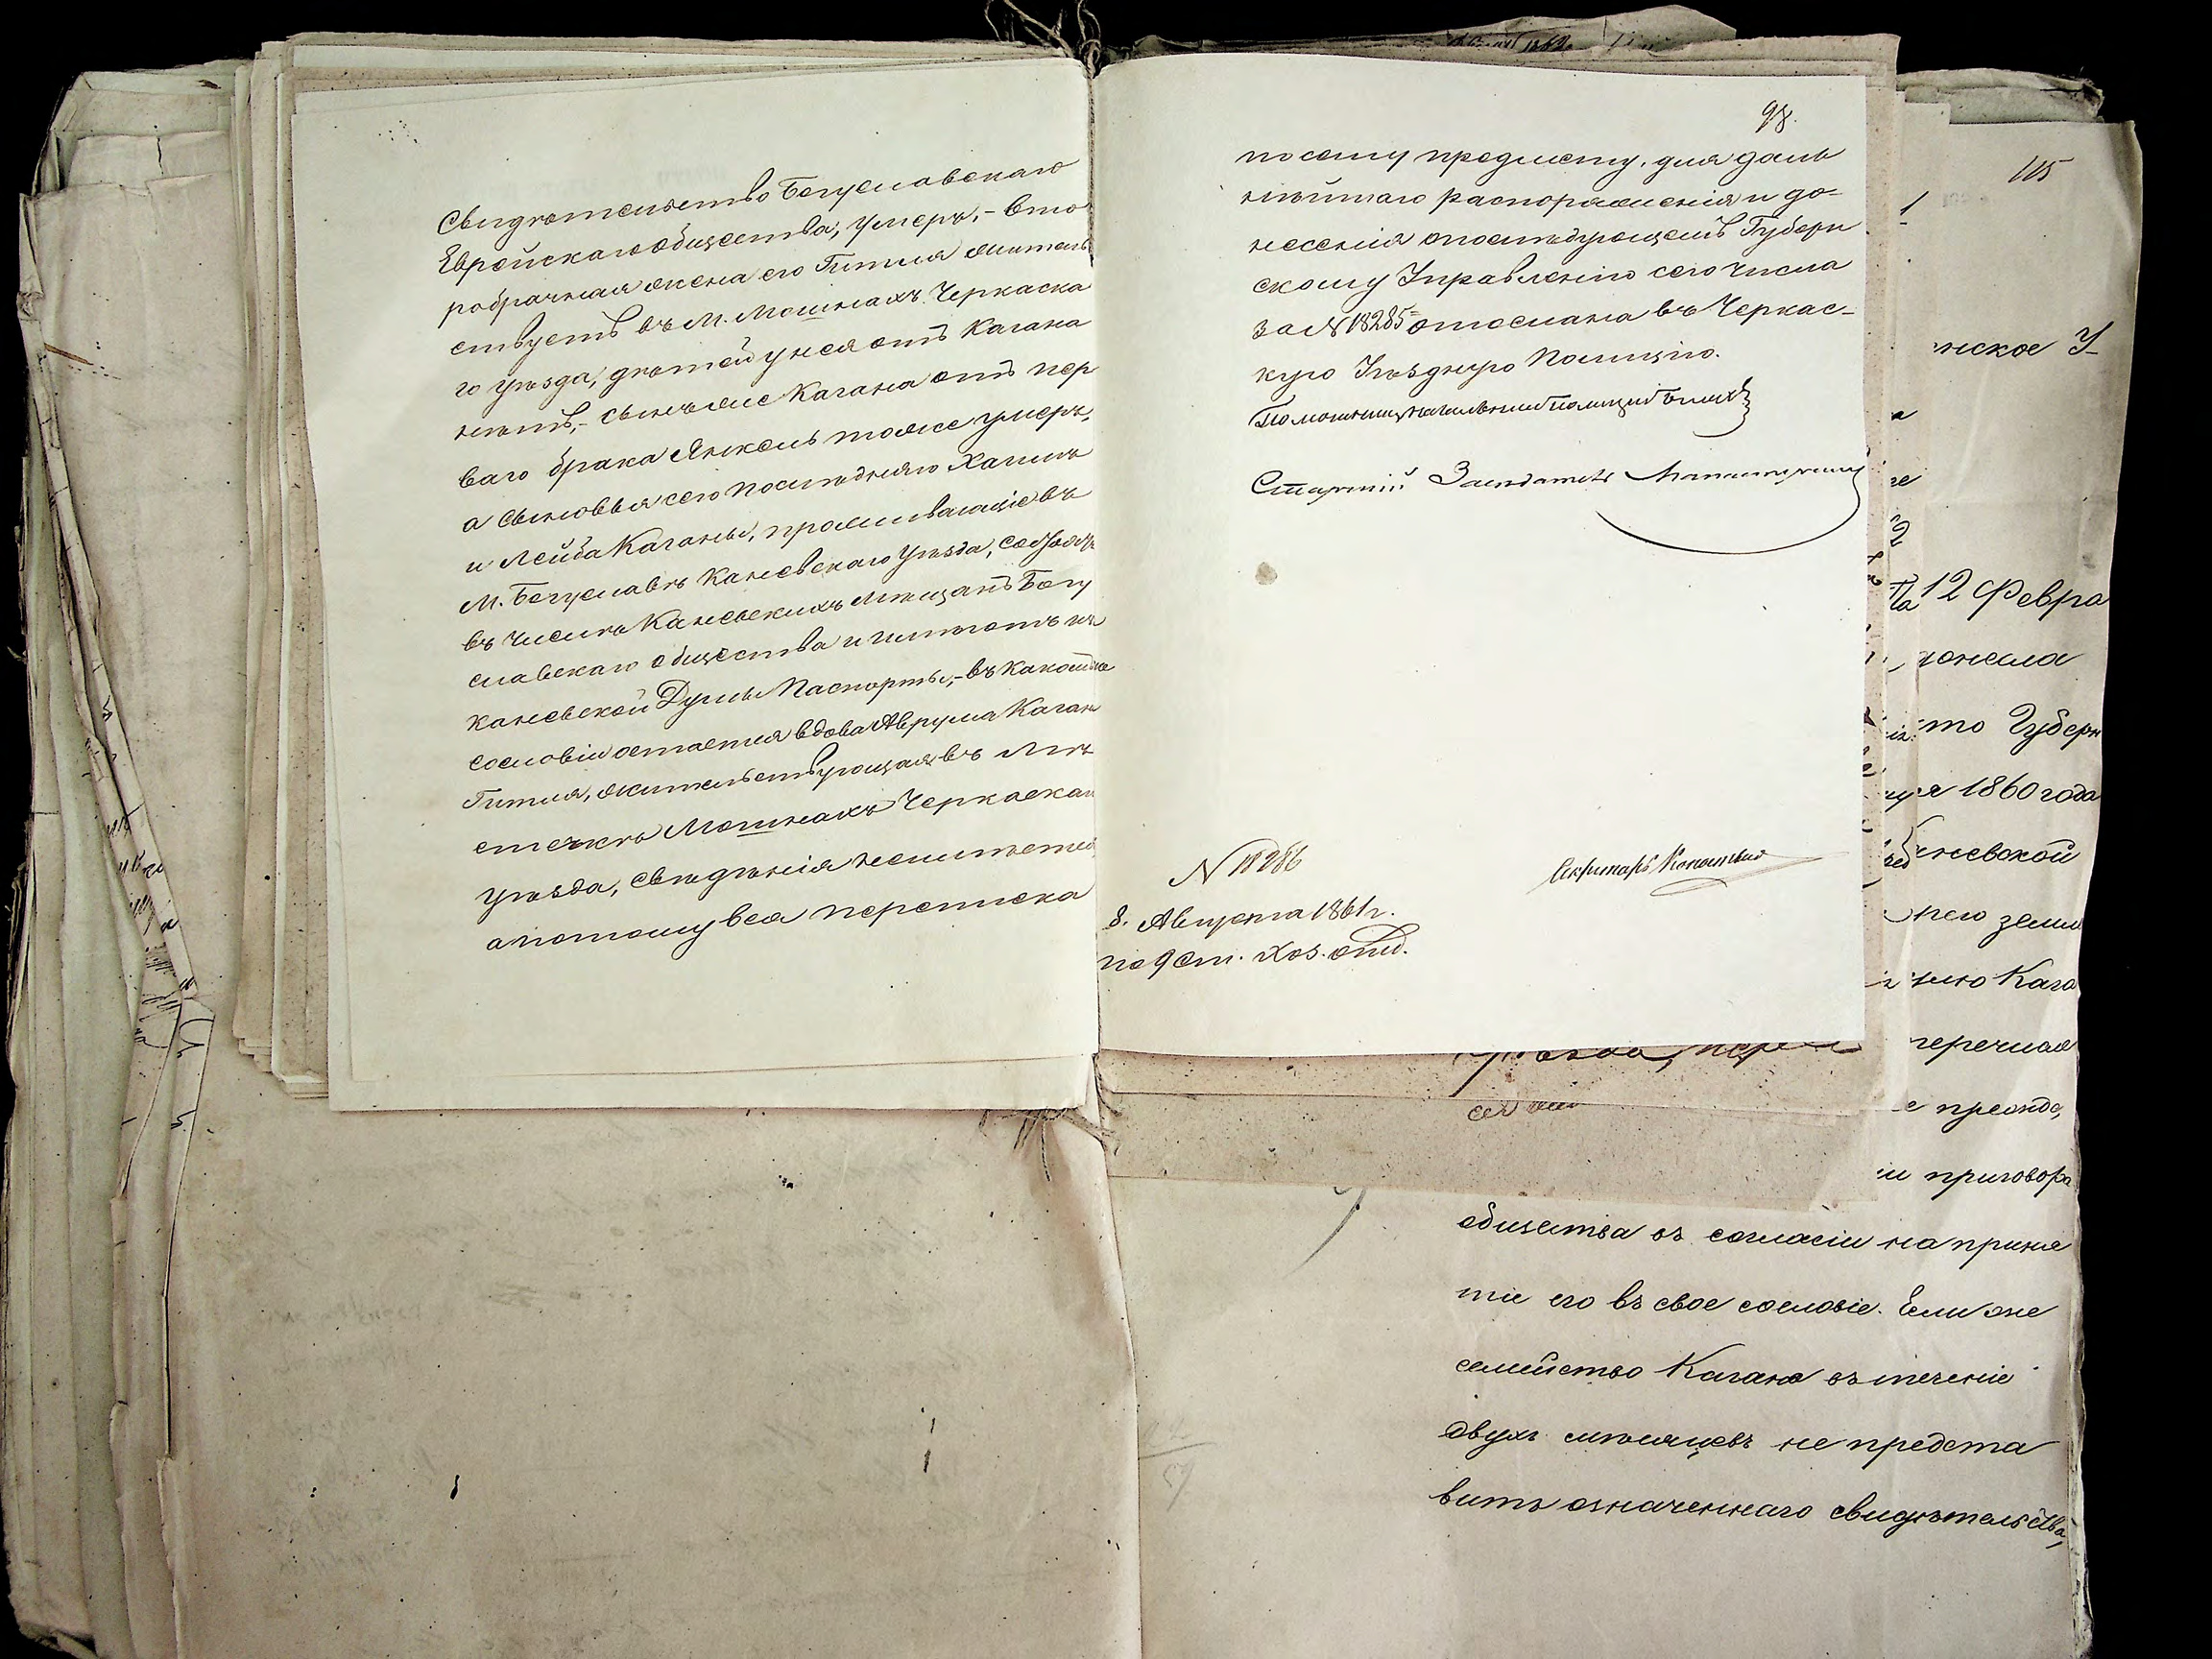 свидѣтельство Богуславскаго
Еврейскаго общества, умеръ, - вто
робрачная жена его Гитля житель
ствуетъ въ М. Мошнахъ Черкаска
го уѣзда, дѣтей у нея отъ Кагана
нѣтъ, - сынъ же Кагана отъ пер
ваго брака Янкель тоже умеръ,
а сыновья сего послѣдняго Хаимъ
и Лейба Каганы, проживающіе въ
М. Богуславѣ Каневскаго уѣзда, состоятъ
въ числѣ Каневскихъ мѣщанъ Богу
славскаго общества и имѣютъ изъ
Каневской Думы Паспорты, - въ какомъ же
сословіи остается вдова Аврума Каган
Гитля, жительствующая въ Мѣ
стечкѣ Мошнахъ Черкаскаго
уѣзда, свѣдѣнія неимѣется
а потому вся переписка
98.
по сему предмету, для даль
нѣйшаго распоряженія и до-
несенія о послѣдующемъ Губерн
скому Управленію сего числа
за № 18285 отослана въ Черкас-
кую Уѣздную Полицію.
Старшій Засѣдатель
№ 18286
Секретарь
8. Августа 1861 г.
по 9 ст. Хоз. отд.
115
1
нское У-
На 12 Февра
донесла
то Губерн
я 1860 года
Каневской
него земли
нію Кага
перечисл
е предст
и приговора
общества въ согласіи на приня
тіе его въ свое сословіе. Если же
семейство Кагана въ теченіе
двухъ мѣсяцевъ не предста
витъ означеннаго свидѣтельства,